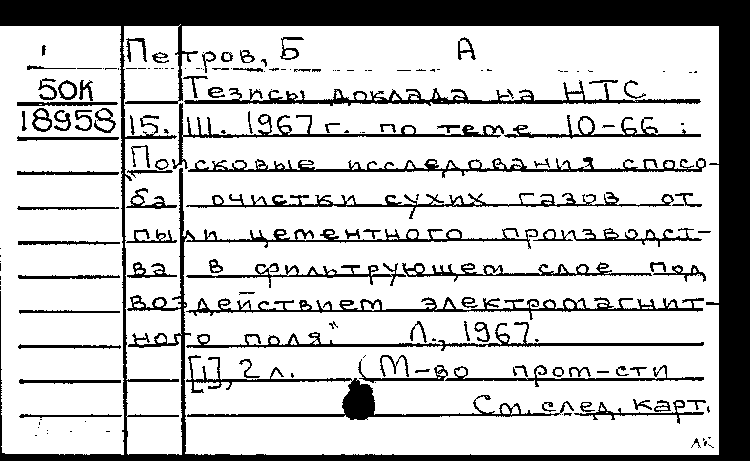 Петров, Б А
50К Тезисы доклада на НТС
18958 15.III.1967г. по теме 10-66:
"Поисковые исследования спосо-
ба очистки сухих газов от
пыли цементного производст-
ва в фильтрующем слое под
воздействием электромагнит-
ного поля." Л., 1967.
[1], 2л. (М-во пром-сти
См. след. карт.
ЛК